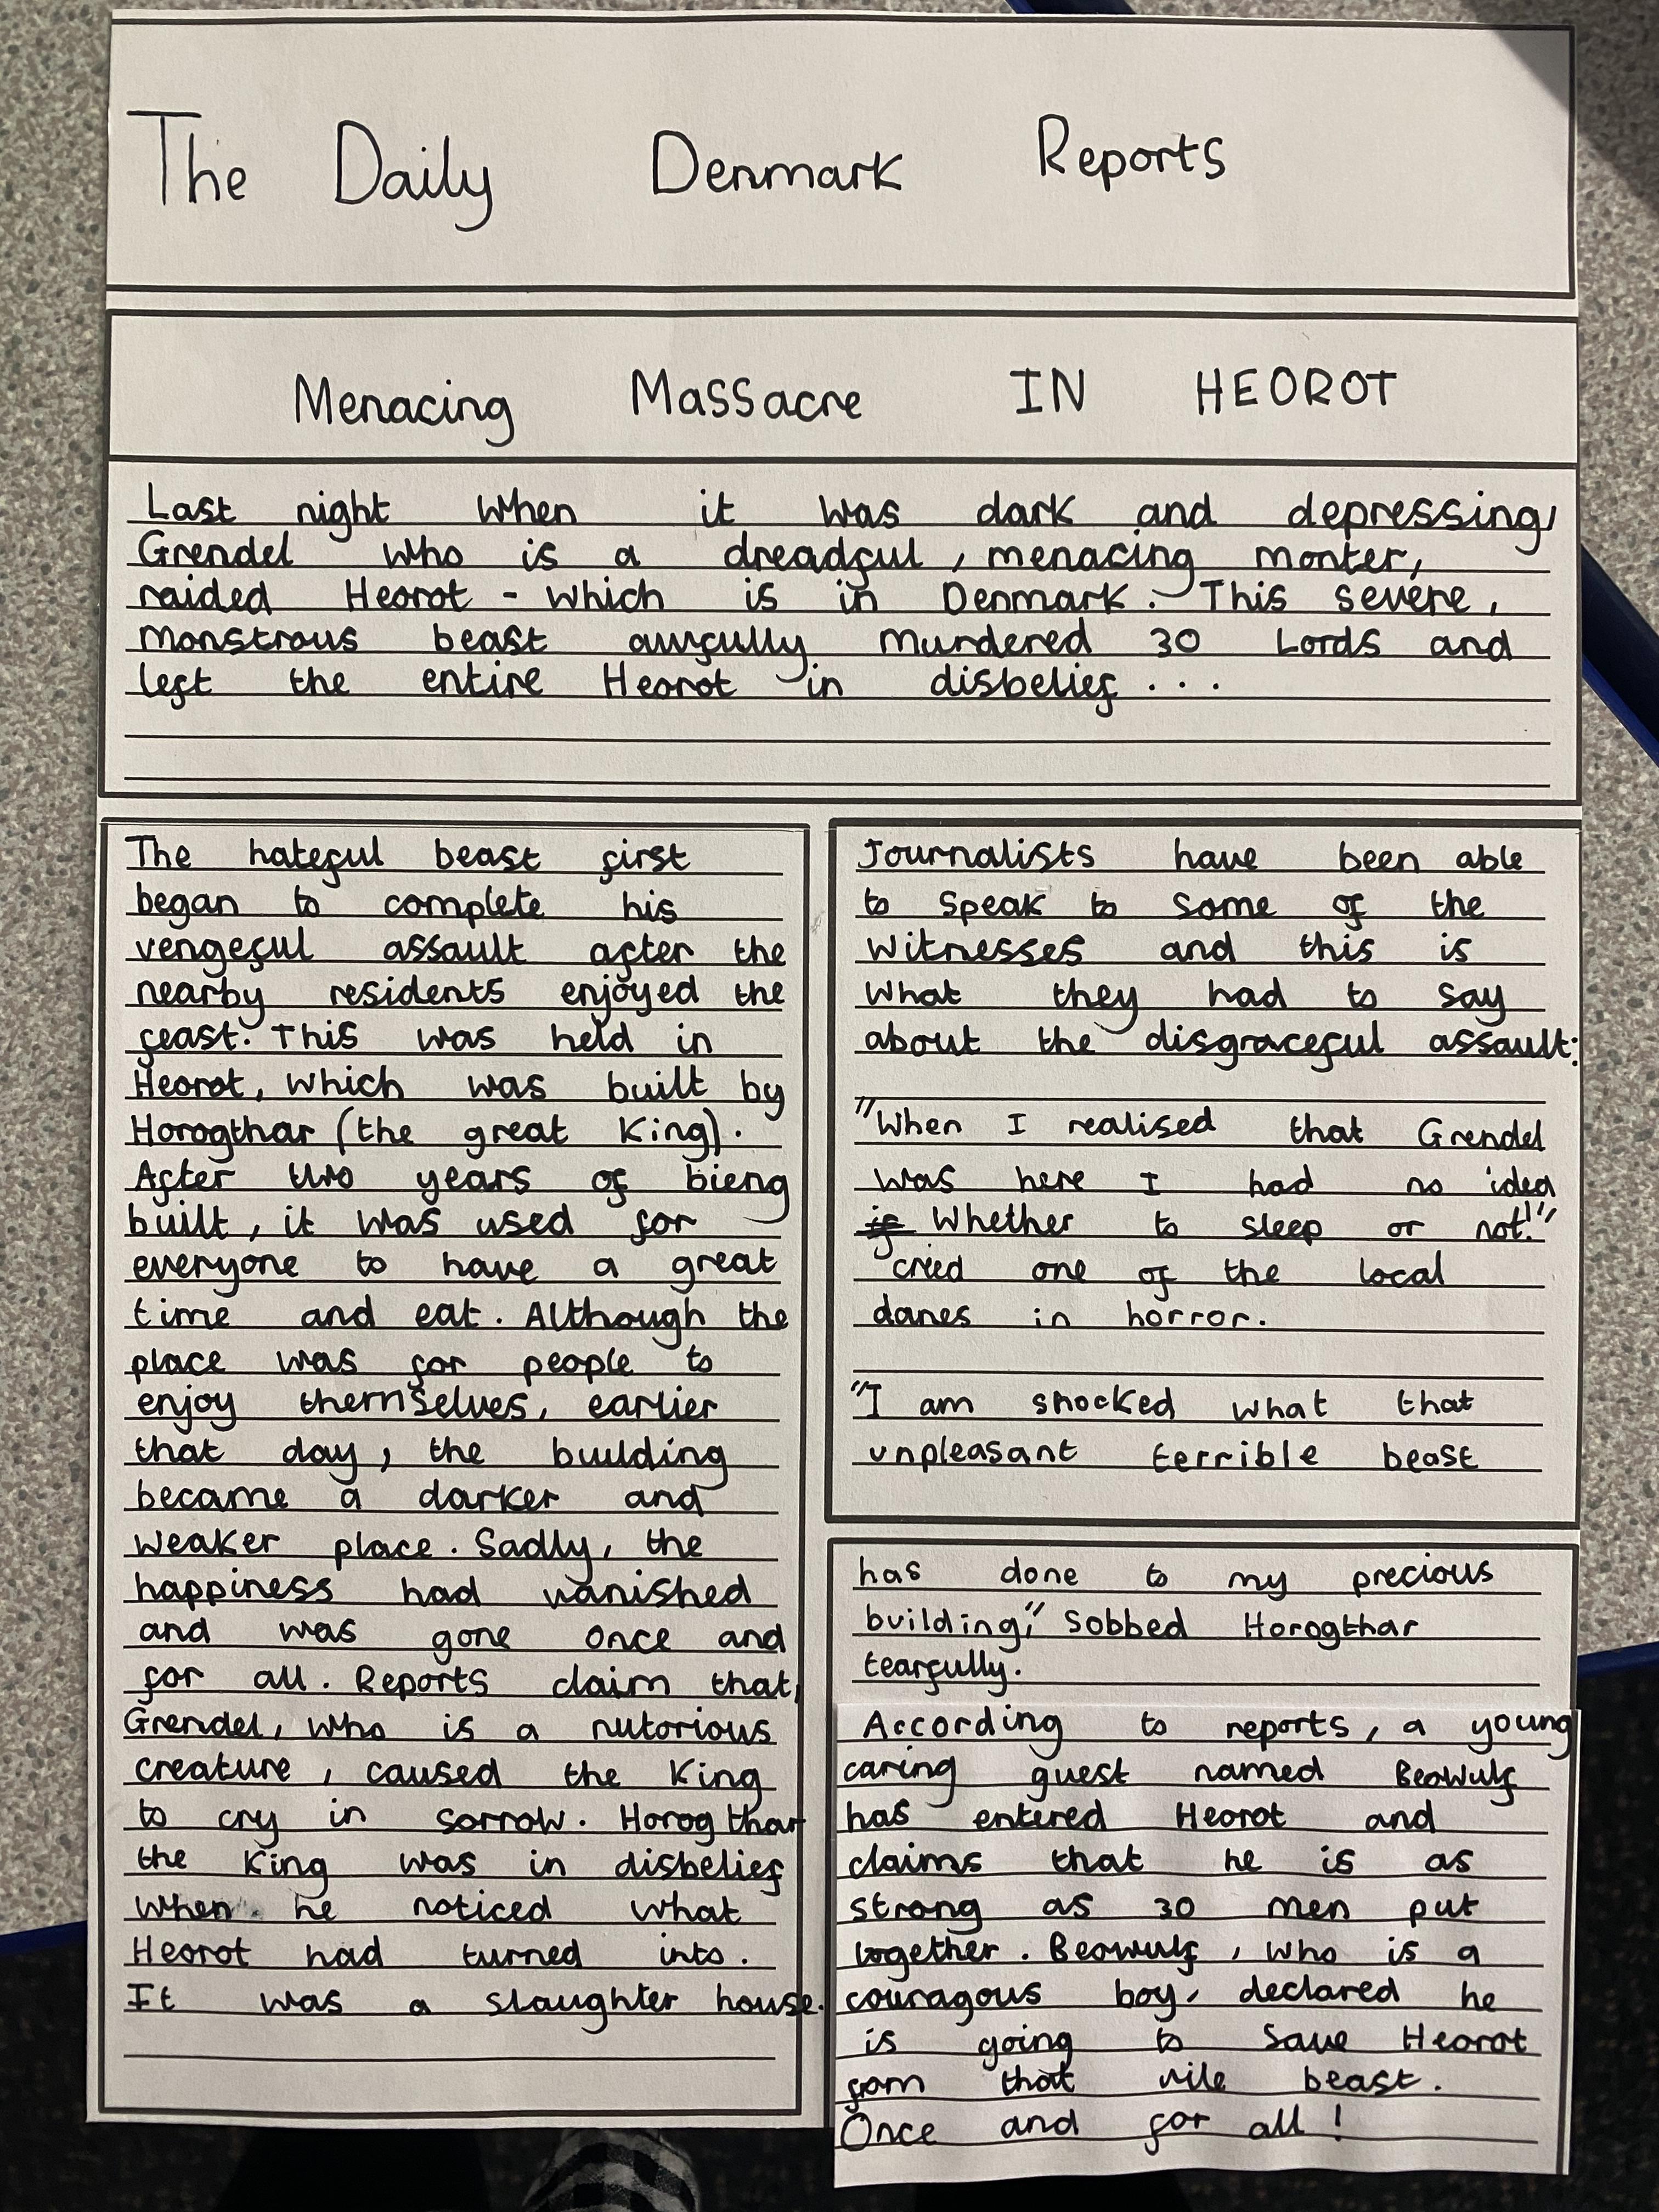 The Daily Denmark Reports
Menacing Massacre IN HEOROT
Last night when it was dark and depressing,
Grendel who is a dreadful, menacing monter,
raided Heorot - which is in Denmark. This severe,
monstrous beast awfully murdered 30 Lords and
left the entire Heorot in disbelief...
The hateful beast first
began to complete his
vengeful assault after the
nearby residents enjoyed the
feast. This was held in
Heorot, which was built by
Horogthar (the great King).
After two years of bieng
built, it was used for
everyone to have a great
time and eat. Although the
place was for people to
enjoy themselves, earlier
that day, the building
became a darker and
weaker place. Sadly, the
happiness had vanished
and was gone once and
for all. Reports claim that,
Grendel, who is a nutorious
creature, caused the King
to cry in sorrow. Horogthar
the King was in disbelief
when he noticed what
Heorot had turned into.
It was a slaughter house.
Journalists have been able
to speak to some of the
witnesses and this is
what they had to say
about the disgraceful assault:
"When I realised that Grendel
was here I had no idea
if whether to sleep or not!"
cried one of the local
danes in horror.
"I am shocked what that
unpleasant terrible beast
has done to my precious
building," sobbed Horogthar
tearfully.
According to reports, a young
caring guest named Beowulf
has entered Heorot and
claims that he is as
strong as 30 men put
together. Beowulf, who is a
couragous boy, declared he
is going to save Heorot
from that vile beast.
Once and for all!